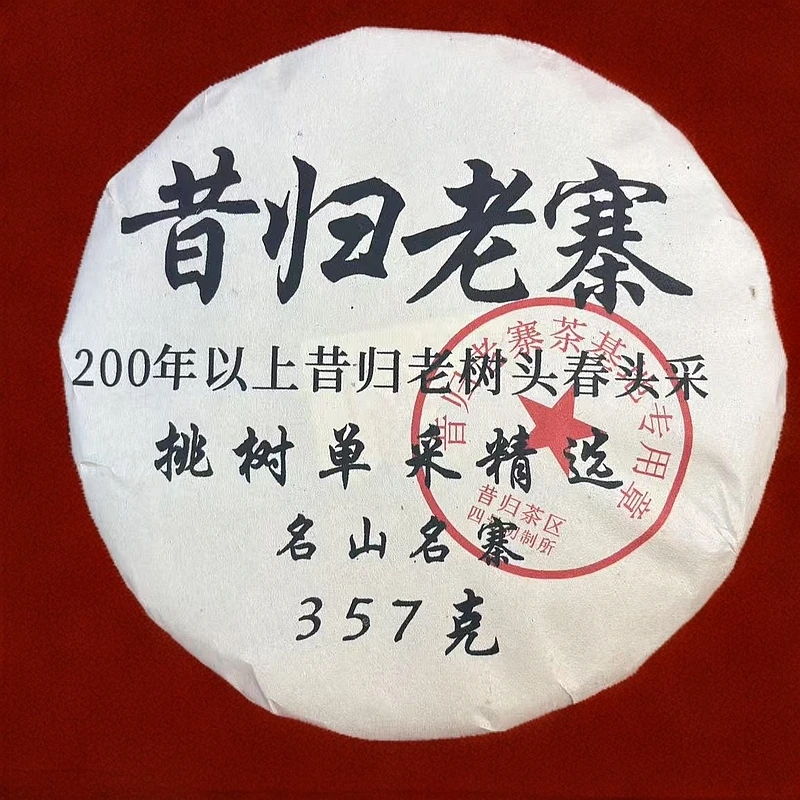 昔归老寨
200年以上昔归老树头春头采
挑树单采精选
名山名寨
357克
昔归老寨茶基地专用章
昔归茶区
制所